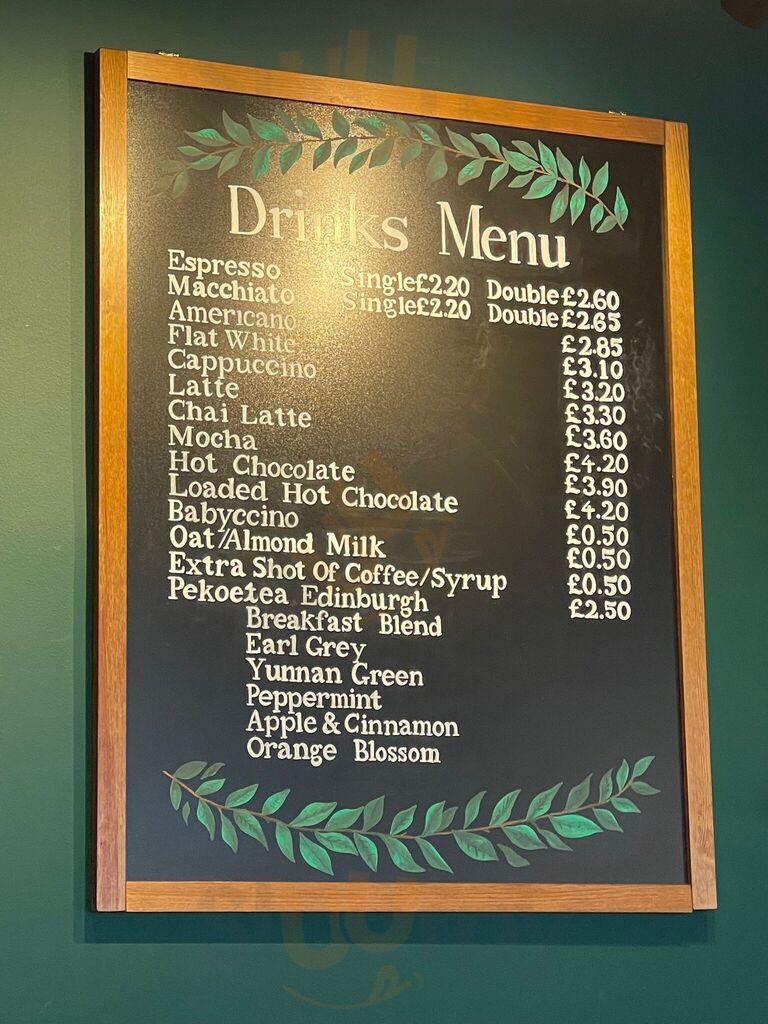 Drinks Menu
Espresso Single£2.20 Double£2.60
Macchiato Single£2.20 Double£2.65
Americano £2.85
Flat White £3.10
Cappuccino £3.20
Latte £3.30
Chai Latte £3.60
Mocha £4.20
Hot Chocolate £3.90
Loaded Hot Chocolate £4.20
Babyccino £0.50
Oat/Almond Milk £0.50
Extra Shot Of Coffee/Syrup £0.50
Pekoetea Edinburgh £2.50
Breakfast Blend
Earl Grey
Yunnan Green
Peppermint
Apple & Cinnamon
Orange Blossom